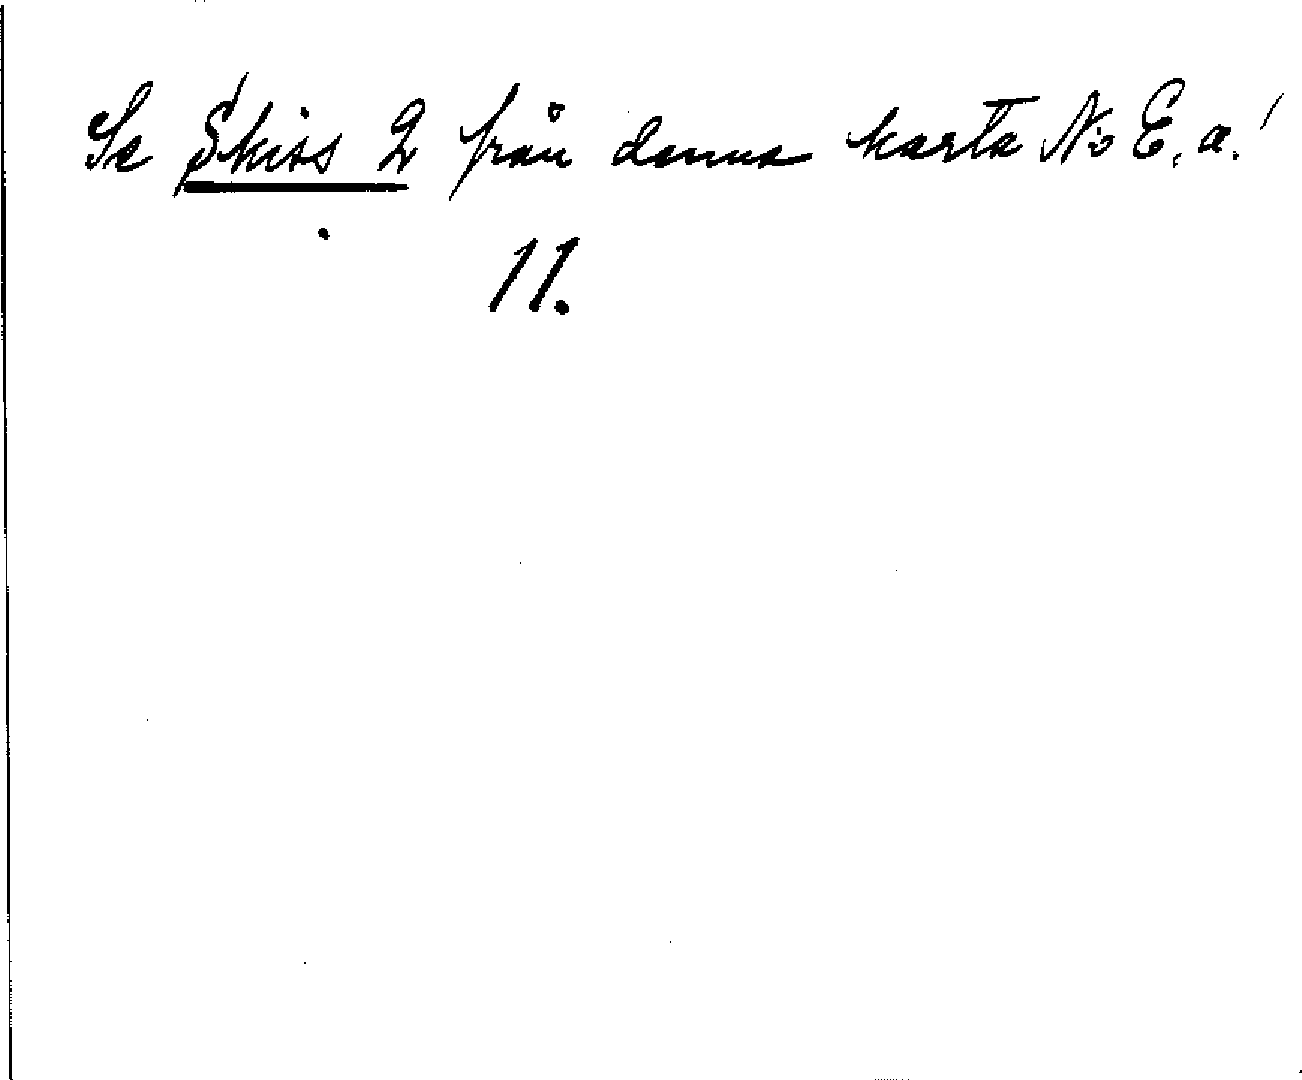 Se Skiss 2 från denna karta No E. a.!
11.